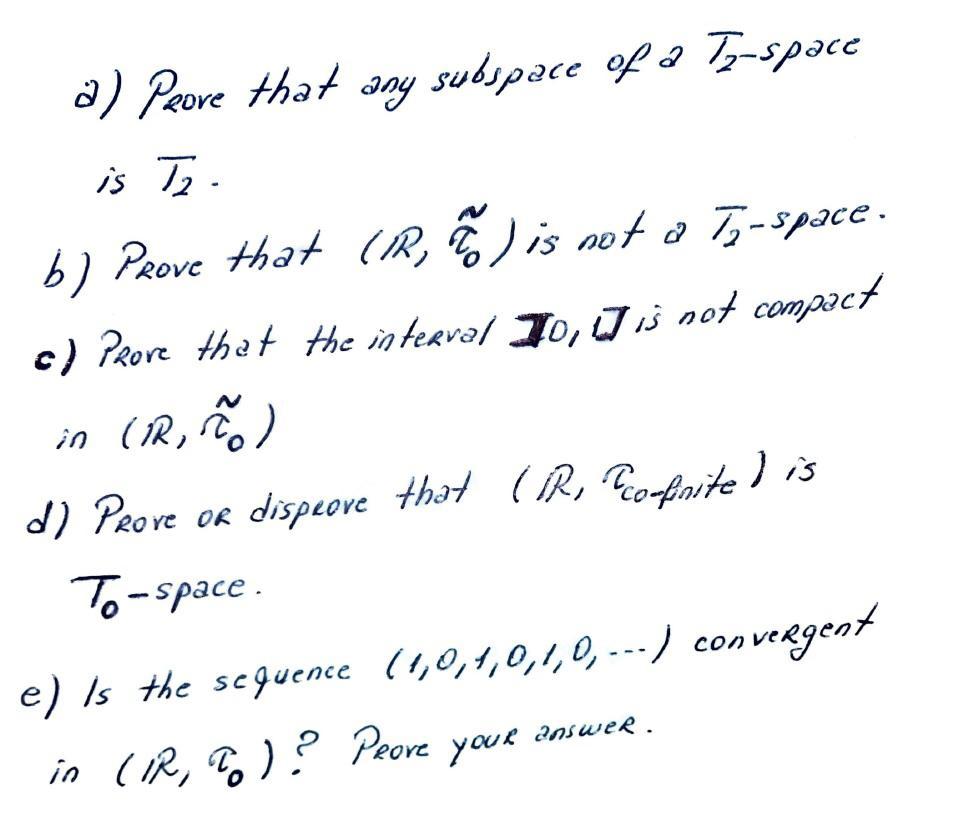 a) Prove that any subspace of a T₂-space
is T₂.
b) Prove that (ℝ, τ̃₀) is not a T₂-space.
c) Prove that the interval ]0,1] is not compact
in (ℝ, τ̃₀)
d) Prove or disprove that (ℝ, τ_co-finite) is
T₀-space.
e) Is the sequence (1,0,1,0,1,0,---) convergent
in (ℝ, τ₀)? Prove your answer.